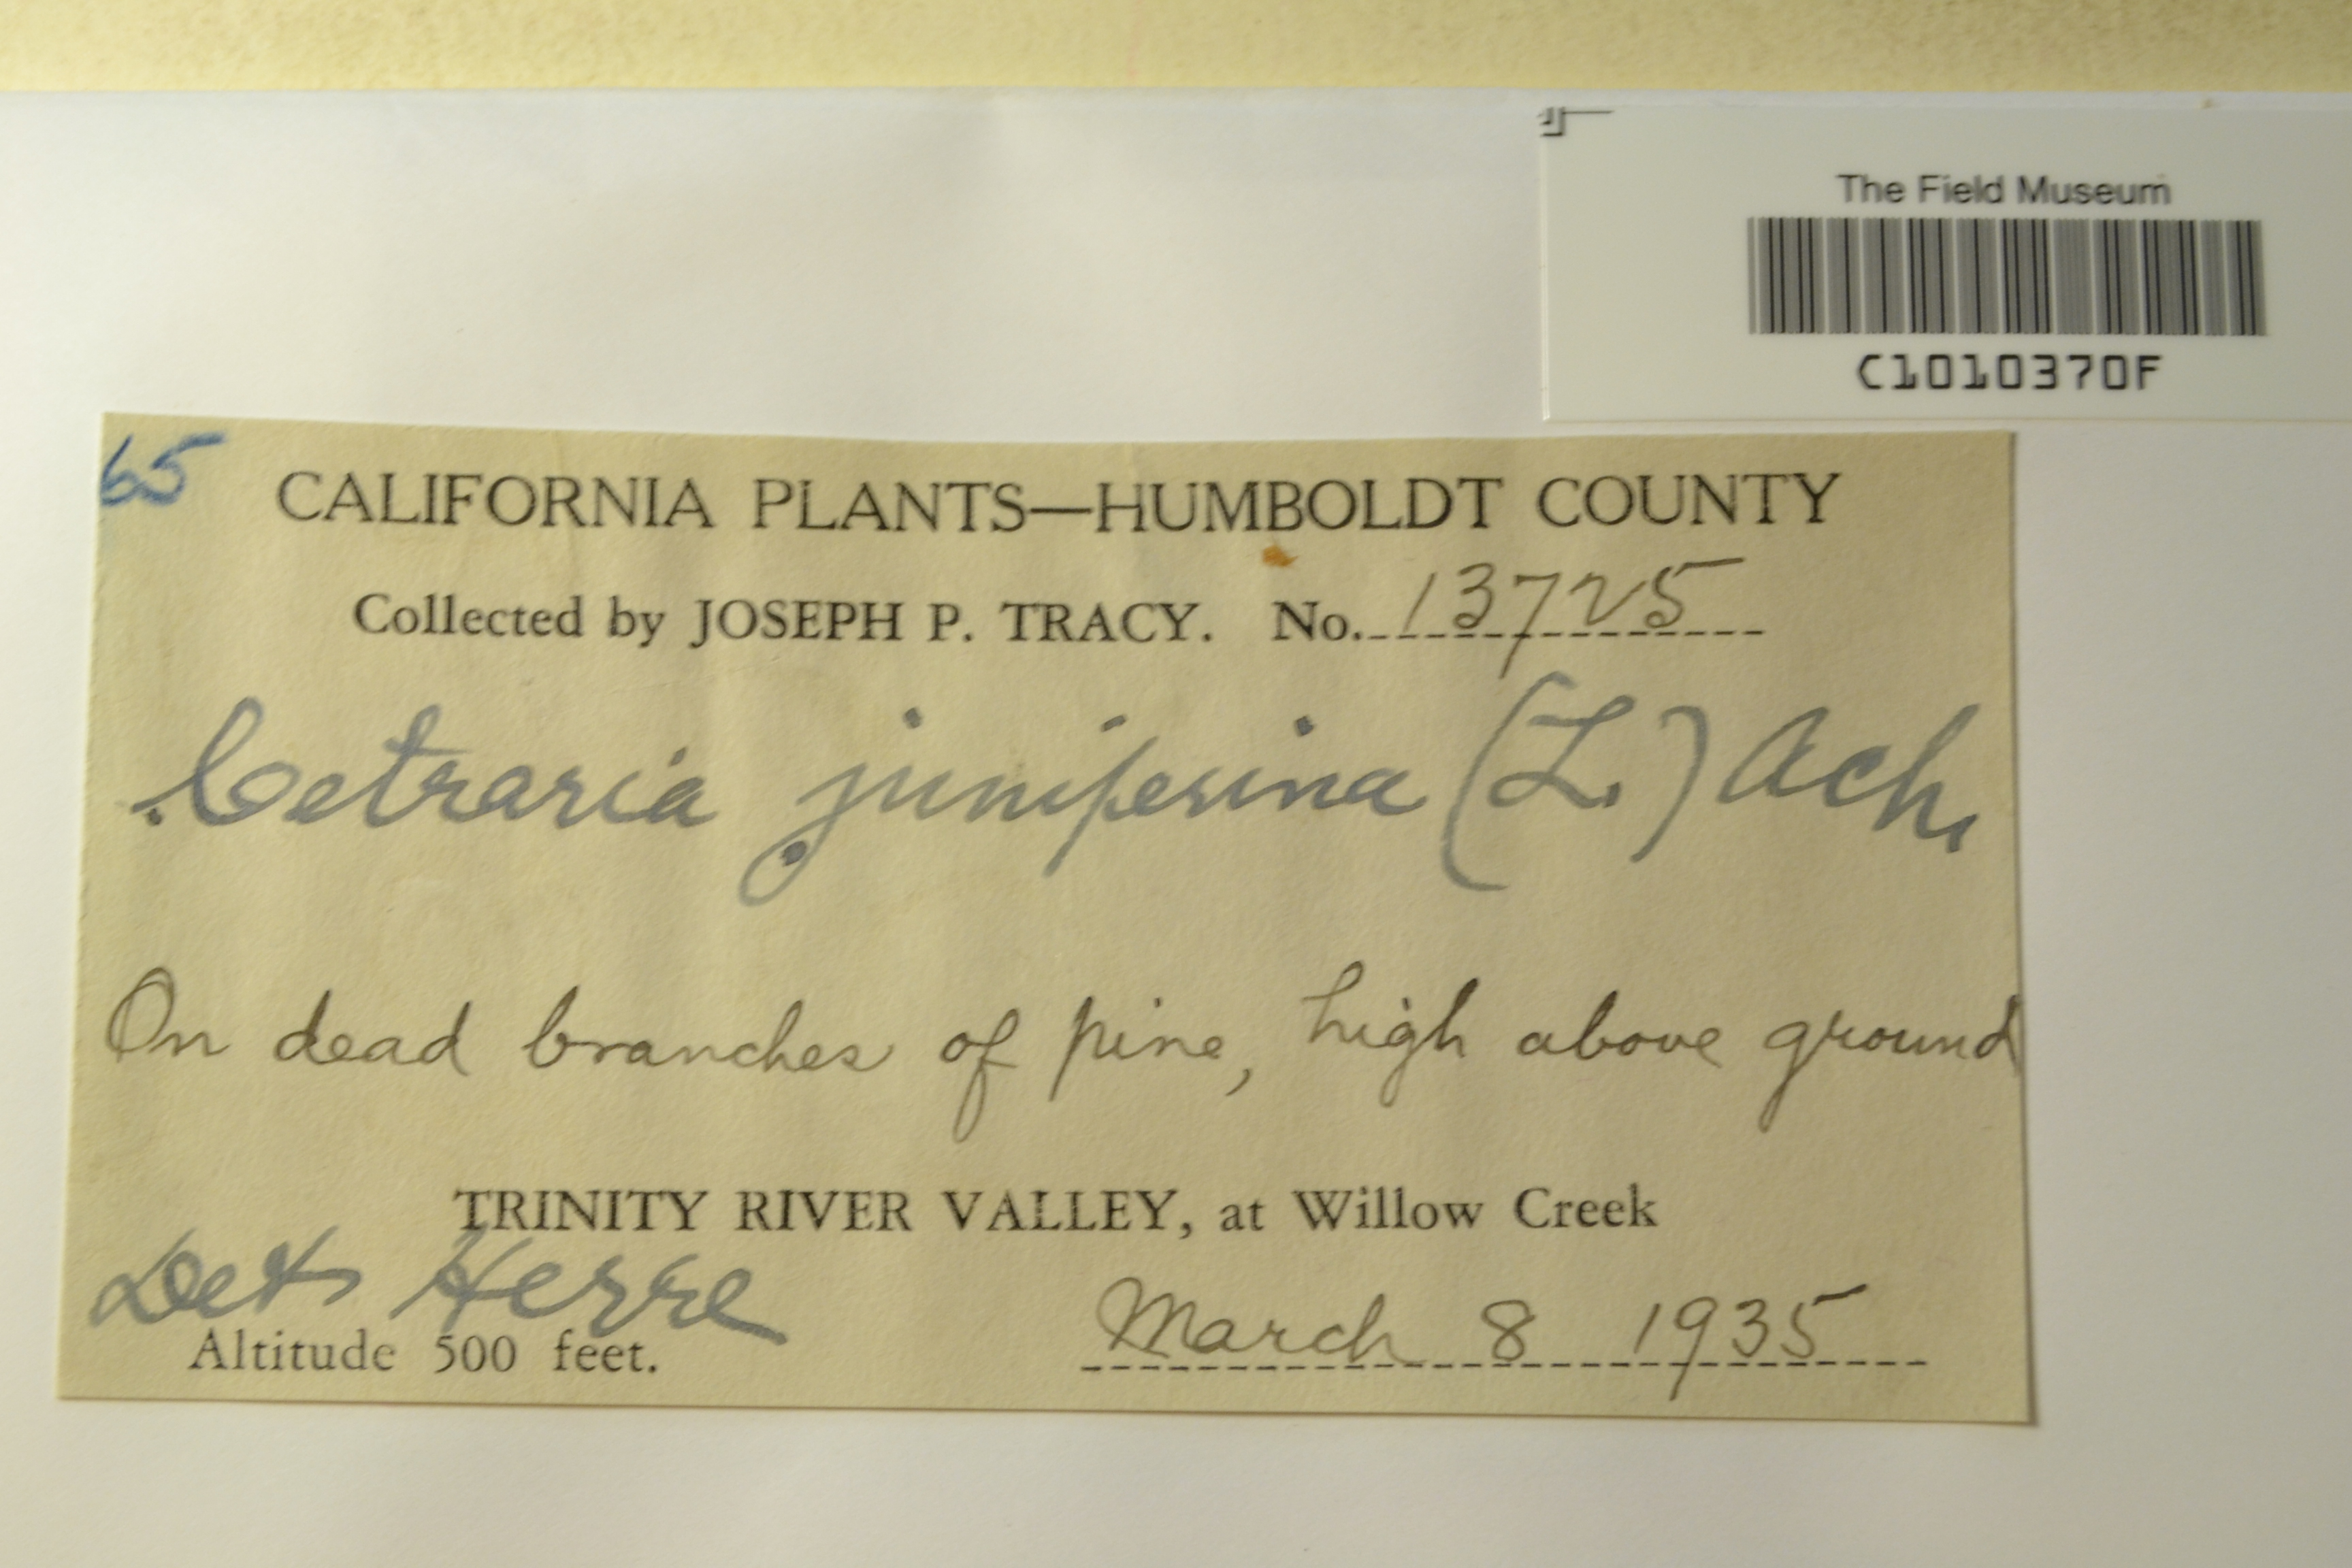 The Field Museum
C1010370F
65
CALIFORNIA PLANTS—HUMBOLDT COUNTY
Collected by JOSEPH P. TRACY. No. 13725
Cetraria juniperina (L.) Ach.
On dead branches of pine, high above ground
TRINITY RIVER VALLEY, at Willow Creek
Det. Herre
Altitude 500 feet.
March 8 1935